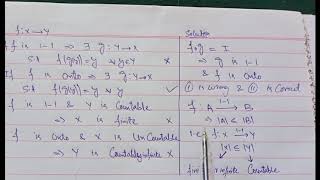 f: X → Y
f is 1-1 ⇒ ∃ g: Y → X
s.t f(g(y)) = y ∀ y ∈ Y
f is Onto ⇒ ∃ g: Y → X
s.t f(g(y)) = y
f is 1-1 & Y is Countable
⇒ X is finite ✗
f is onto & X is UnCountable
⇒ Y is Countably infinite ✗
Solution
fog = I
⇒ g is 1-1
& f is onto
① is wrong & ⑪ is correct
f: A 1-1→ B
⇒ |A| ≤ |B|
i.e. f: X 1-1→ Y
|X| ≤ |Y|
infinite Countable